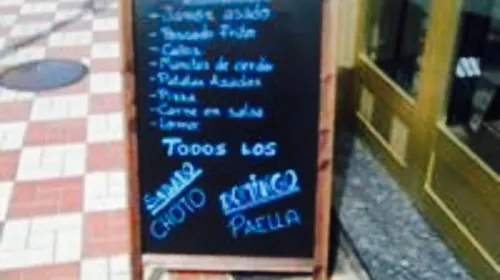 - Jamón asado
- Pescado Frito
- Callos
- Manitas de cerdo
- Patatas Asadas
- Pizza
- Carne en salsa
- Lomo
TODOS LOS
SABADO
CHOTO
DOMINGO
PAELLA